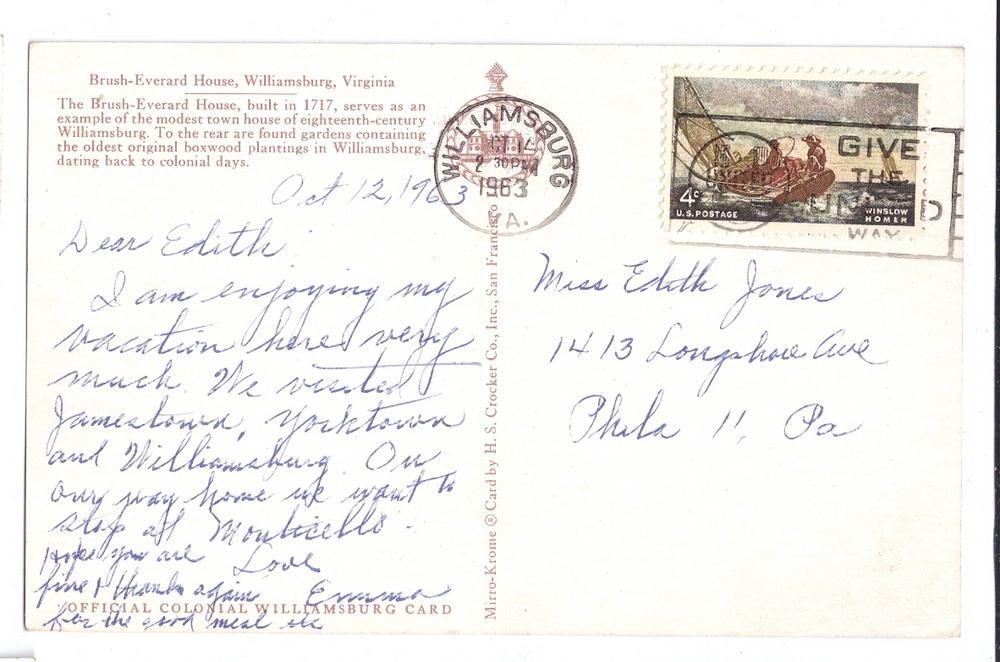 Brush-Everard House, Williamsburg, Virginia
The Brush-Everard House, built in 1717, serves as an
example of the modest town house of eighteenth-century
Williamsburg. To the rear are found gardens containing
the oldest original boxwood plantings in Williamsburg,
dating back to colonial days.
Oct 12, 1963
Dear Edith
I am enjoying my
vacation here very
much. We visited
Jamestown, Yorktown
and Williamsburg. On
our way home we want to
stop at Monticello.
Hope you are
fine & thanks again
for the good meal etc
Love
Emma
OFFICIAL COLONIAL WILLIAMSBURG CARD
Mirro-Krome ® Card by H. S. Crocker Co., Inc., San Francisco
WILLIAMSBURG
OCT 14
2 30 PM
1963
VA.
4c
U.S. POSTAGE
WINSLOW
HOMER
GIVE
THE
UNITED
WAY
Miss Edith Jones
1413 Longshore Ave
Phila 11, Pa